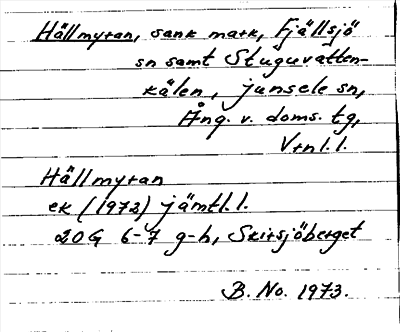 Hällmyran, sank mark, Fjällsjö
sn samt Stuguvatten-
kälen, Junsele sn,
Ång. v. doms. tg,
Vtnl. l.
Hällmyran
ek (1972) jämtl. l.
20G 6-7 g-h, Skirsjöberget
B. No. 1973.